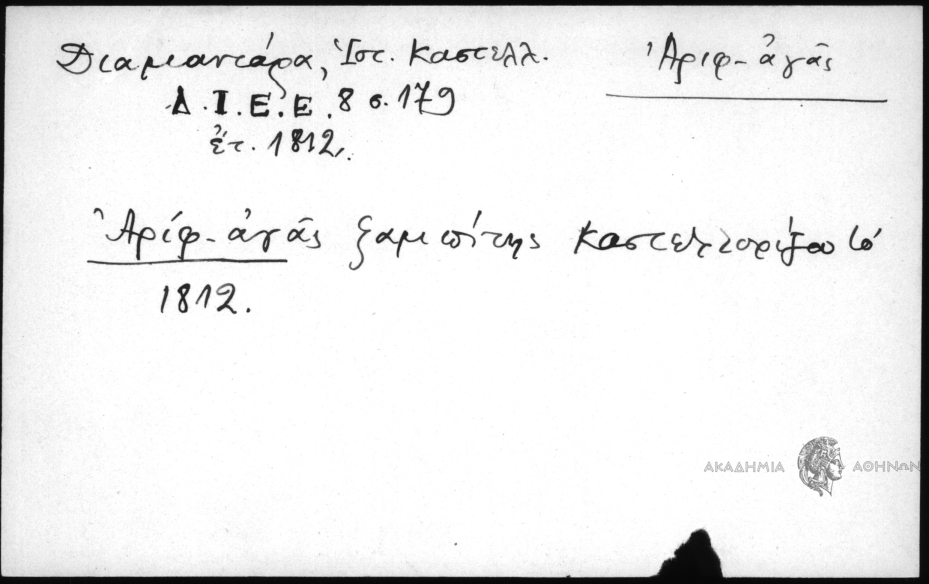 Διαμαντάρα, Ἱστ. Καστελλ.
Ἀριφ-ἀγᾶς
Δ.Ι.Ε.Ε. 8 σ. 179
ἔτ. 1812.
Ἀρίφ-ἀγᾶς ζαμπίτης Καστελλορίζου τό
1812.
ΑΚΑΔΗΜΙΑ ΑΘΗΝΩΝ